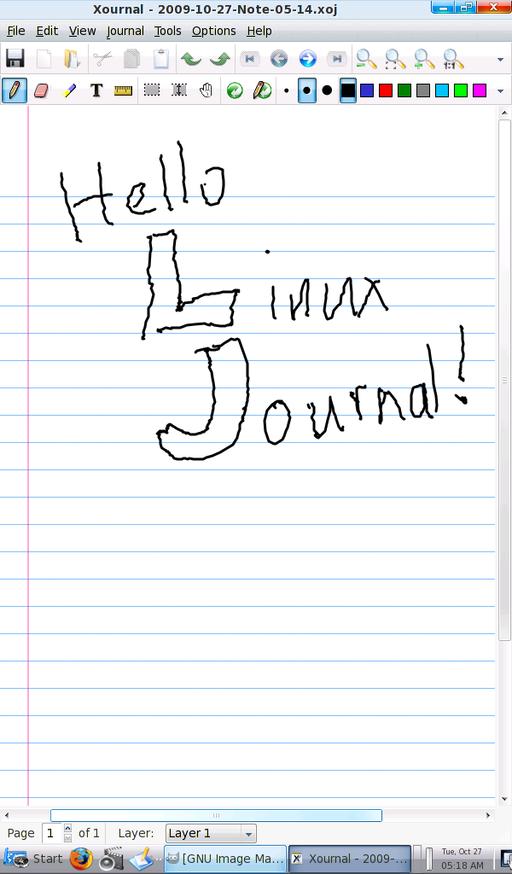 Xournal - 2009-10-27-Note-05-14.xoj
File Edit View Journal Tools Options Help
Hello
Linux
Journal!
Page 1 of 1 Layer: Layer 1
Start [GNU Image Ma... Xournal - 2009-... Tue, Oct 27
05:18 AM